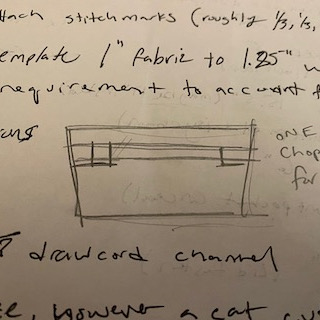 stitch marks (roughly 1/3, 1/3,
template 1" fabric to 1.25"
requirement to account f
ONE
Chop
for
drawcord channel
However a cat cu